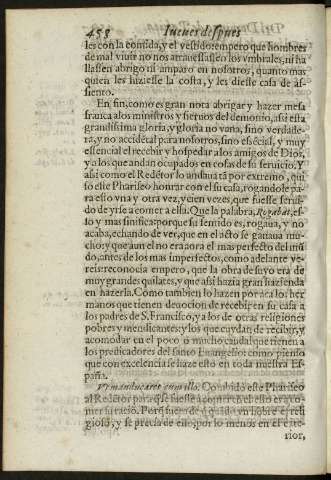 458 Iueues despues
les con la comida, y el vestido: empero que hombres
de mal viuir no nos atrauessassen los vmbrales, ni ha
llassen abrigo ni amparo en nosotros, quanto mas
quien les hiziesse la costa, y les diesse casa de as-
siento.
En fin, como es gran nota abrigar y hazer mesa
franca a los ministros y sieruos del demonio, assi es la
grandissima gloria, y gloria no vana, sino verdade-
ra, y no accidental para nosotros, sino essencial, y muy
essencial el recebir y hospedar a los amigos de Dios,
y a los que andan ocupados en cosas de su seruicio. Y
assi como el Redẽtor lo andaua tã por extremo, qui
so este Phariseo honrar con el su casa, rogandole pa-
ra esso vna y otra vez, y cien vezes, que fuesse serui-
do de yrse a comer a ella. Que la palabra, Rogabat, es-
so y mas sinifica: porque su sentido es, rogaua, y no
acaba, echando de ver, que en el acto se gataua mu-
cho: y que aun el no era ora el mas perfecto del mũ
do, antes de los mas imperfectos, como adelante ve-
reis: reconocia empero, que la obra de suyo era de
muy grandes quilates, y que assi hazia gran hazienda
en hazerla. Como tambien lo hazen por aca los her
manos que tienen deuocion de recebir en su casa a
los padres de S. Francisco, y a los de otras religiones
pobres y mendicantes: y los que cuydan de recibir, y
acomodar en el poco o mucho caudal que tienen a
los predicadores del santo Euangelio: como pienso
que con excelencia se haze esto en toda nuestra Es-
paña.
Vt manducaret cum illo. Combido este Phariseo
al Redẽtor para que fuesse a comer: en esto era yo a co-
mer su racio. Porque fuera de que vn hombre reli
gioso, y se precia de ello, por lo menos en el exte-
rior,